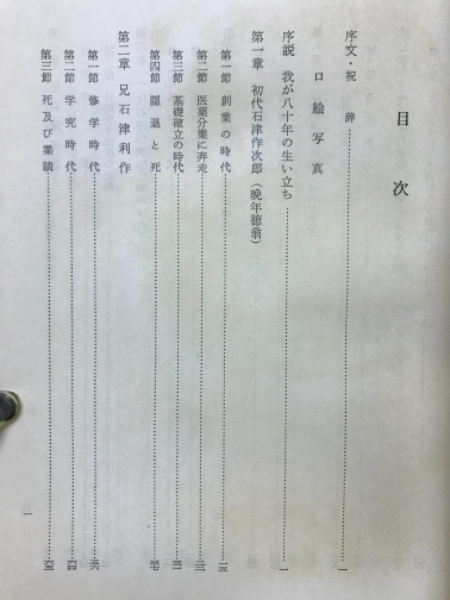 目次
序文・祝辞…………一
口絵写真
序説 我が八十年の生い立ち…………一
第一章 初代石津作次郎（晩年徳翁）
第一節 創業の時代…………一三
第二節 医薬分業に奔走…………二三
第三節 基礎確立の時代…………三一
第四節 隠退と死…………三七
第二章 兄石津利作
第一節 修学時代
第二節 学究時代…………六四
第三節 死及び業績…………六五
一